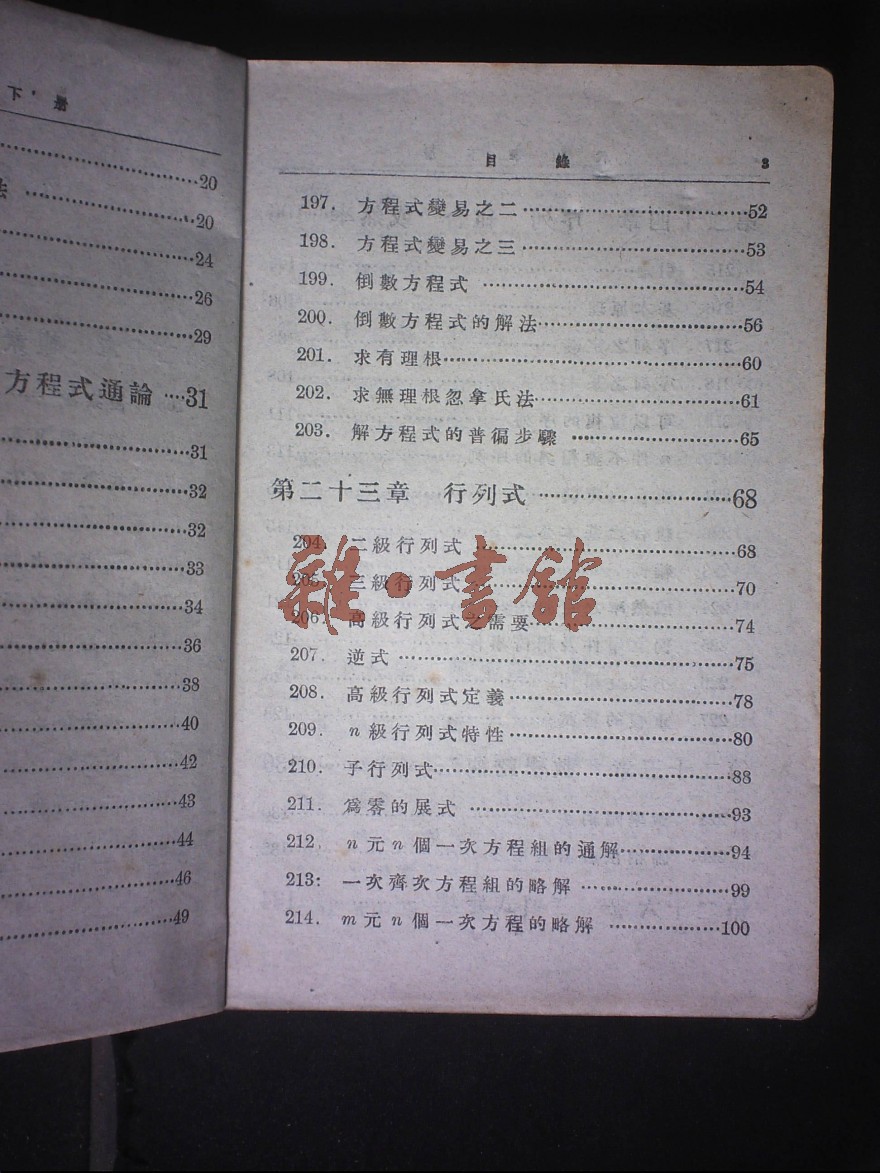 下 册
20
法 20
24
26
29
方程式通論 31
31
32
32
33
34
36
38
40
42
43
44
46
49
目 錄 3
197. 方程式變易之二 52
198. 方程式變易之三 53
199. 倒數方程式 54
200. 倒數方程式的解法 56
201. 求有理根 60
202. 求無理根忽拿氏法 61
203. 解方程式的普徧步驟 65
第二十三章 行列式 68
204. 二級行列式 68
205. 三級行列式 70
206. 高級行列式之需要 74
207. 逆式 75
208. 高級行列式定義 78
209. n級行列式特性 80
210. 子行列式 88
211. 爲零的展式 93
212. n元n個一次方程組的通解 94
213: 一次齊次方程組的略解 99
214. m元n個一次方程的略解 100
雜·書館